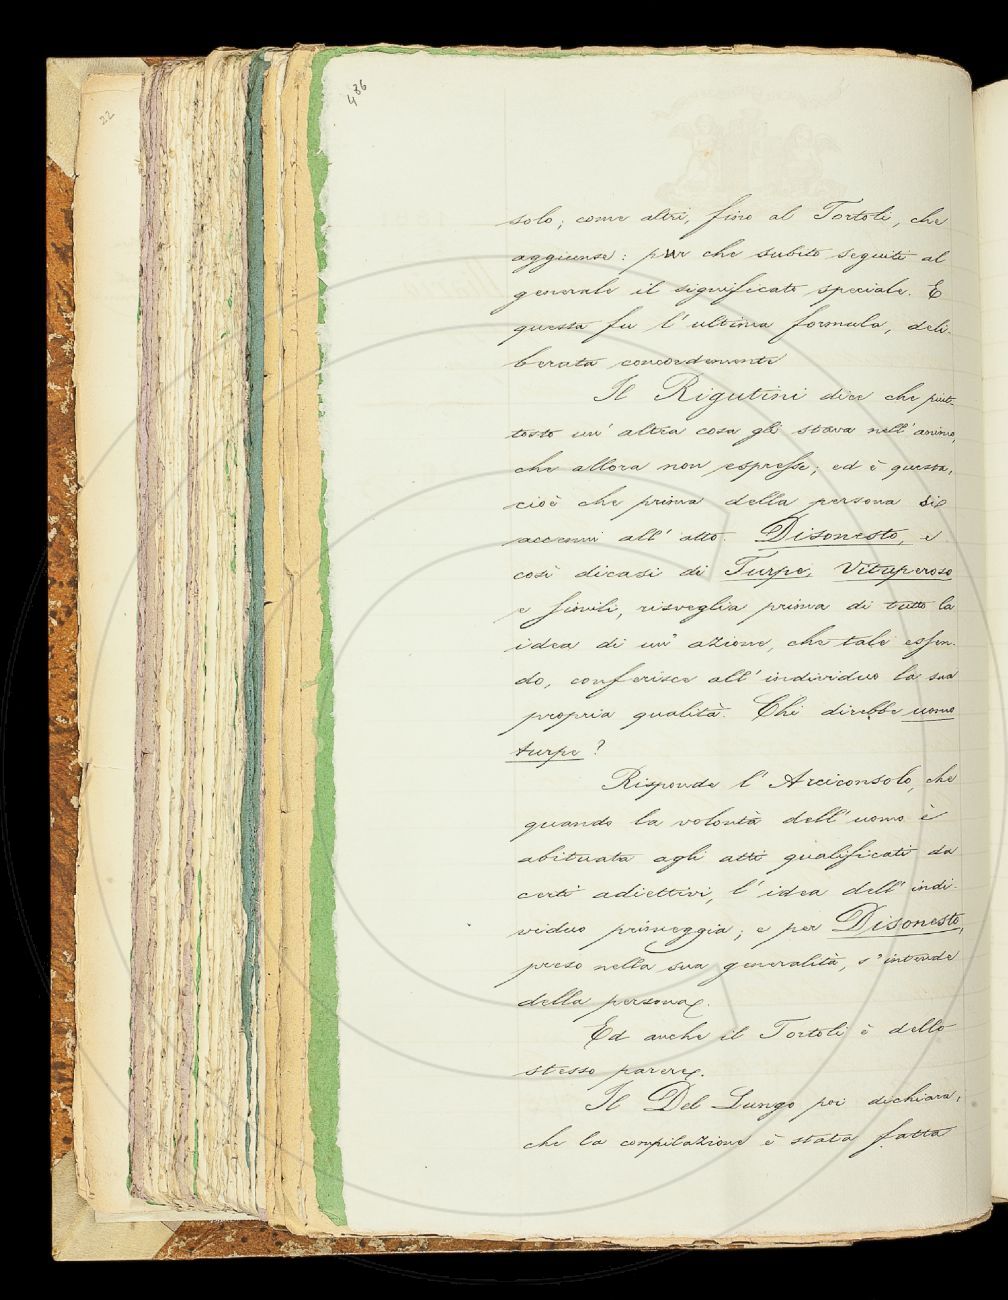 436
22
solo; come altri, fino al Tortoli, che
aggiunse: pur che subito seguiti al
generale il significato speciale. E
questa fu l'ultima formula, deli-
berata concordemente
Il Rigutini dice che piut-
tosto un'altra cosa gli stava nell'animo,
che allora non espresse; ed è questa,
cioè che prima della persona si
accenni all'atto. Disonesto, e
così dicasi di Turpe, Vituperoso
e simili, risveglia prima di tutto la
idea di un'azione, che tale essen-
do, conferisce all'individuo la sua
propria qualità. Chi direbbe uomo
turpe?
Risponde l'Arciconsolo, che
quando la volontà dell'uomo è
abituata agli atti qualificati da
certi adiettivi, l'idea dell'indi-
viduo primeggia; e per Disonesto,
preso nella sua generalità, s'intende
della persona.
Ed anche il Tortoli è dello
stesso parere.
Il Del Lungo poi dichiara,
che la compilazione è stata fatta